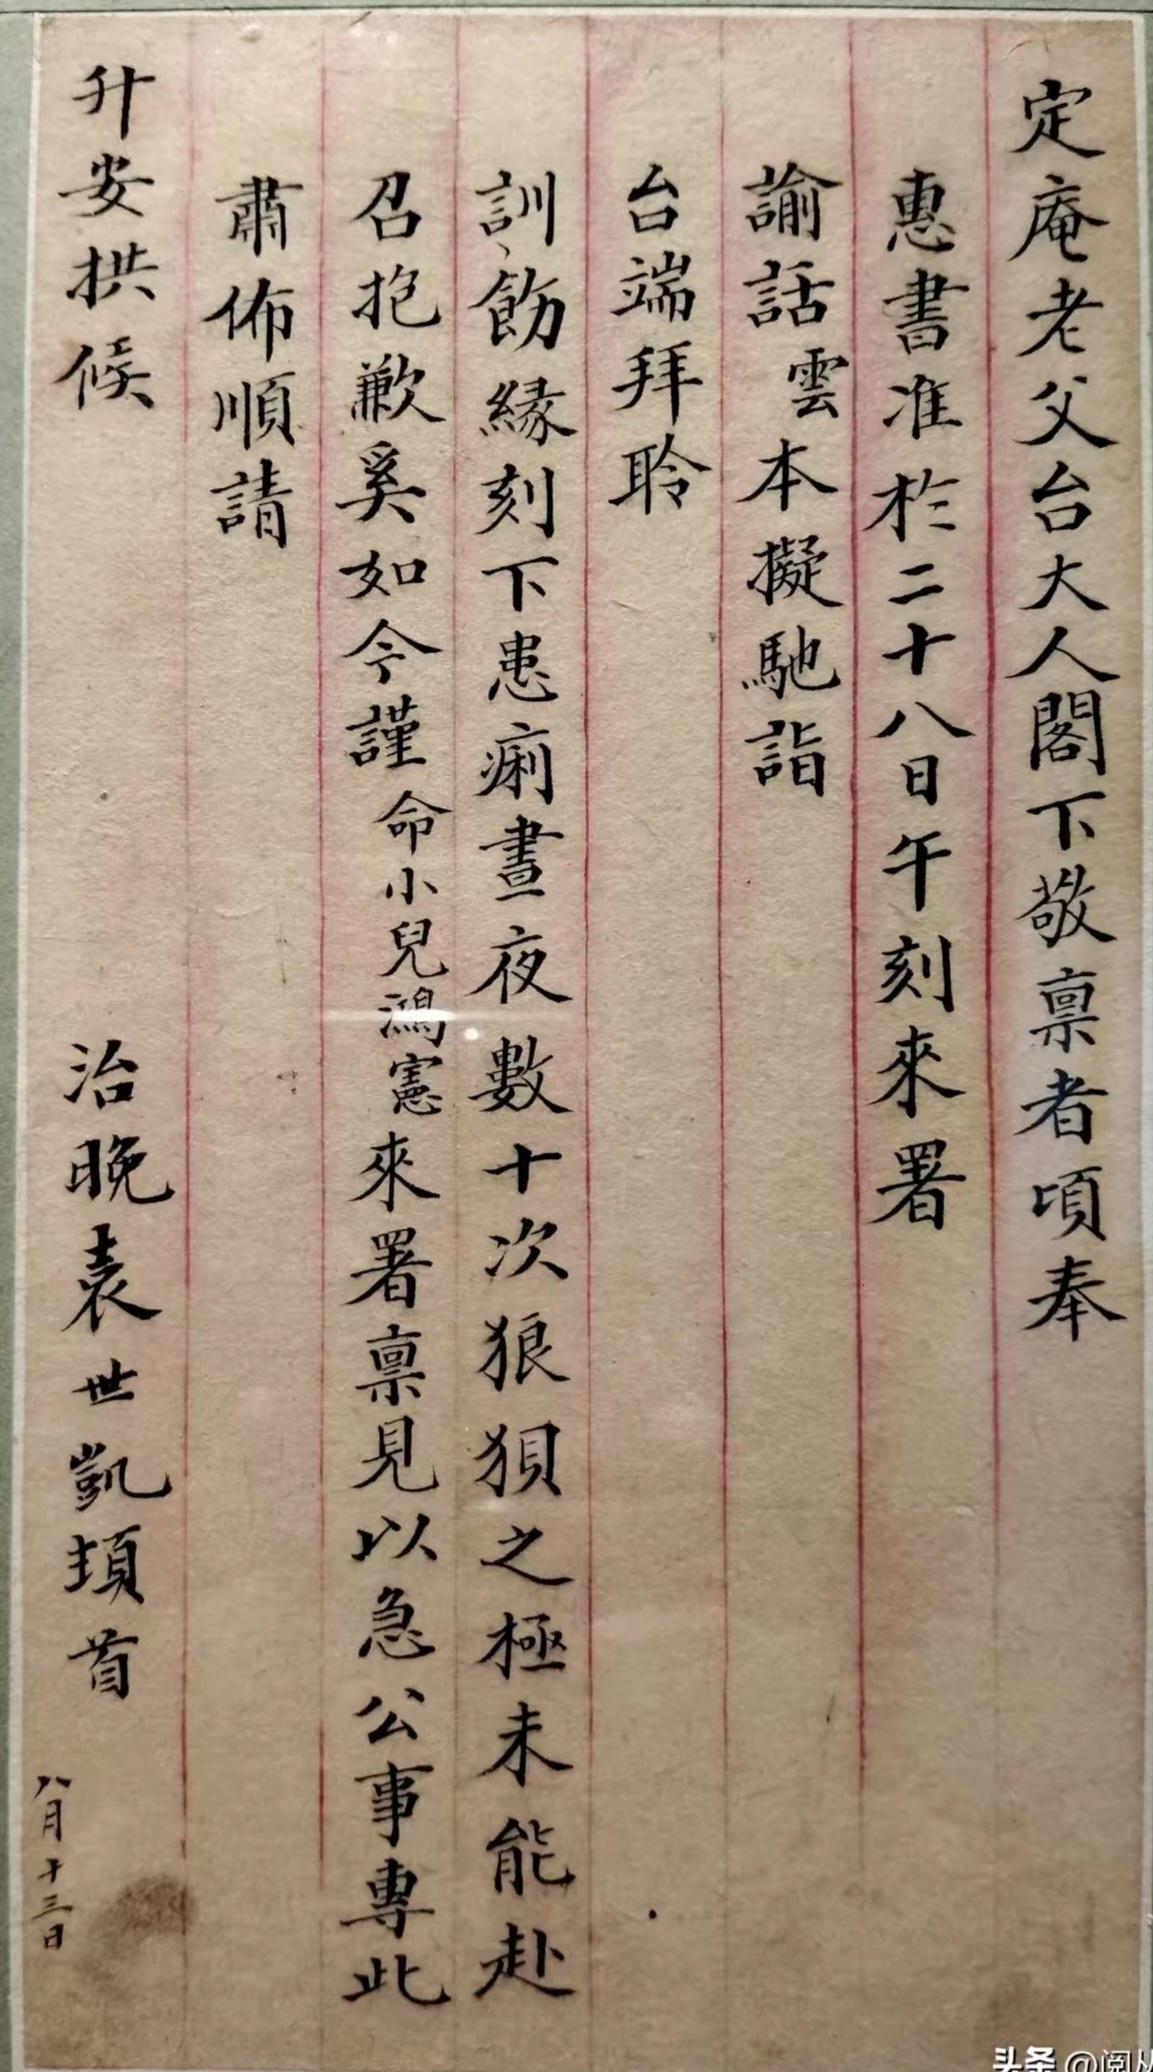 定庵老父台大人閣下敬禀者頃奉
惠書准於二十八日午刻來署
諭話雲本擬馳詣
台端拜聆
訓飭緣刻下患痢晝夜數十次狼狽之極未能赴
召抱歉奚如今謹命小兒鴻憲來署禀見以急公事專此
肅佈順請
升安拱候
治晚袁世凱頓首
八月十三日
头条 @阅